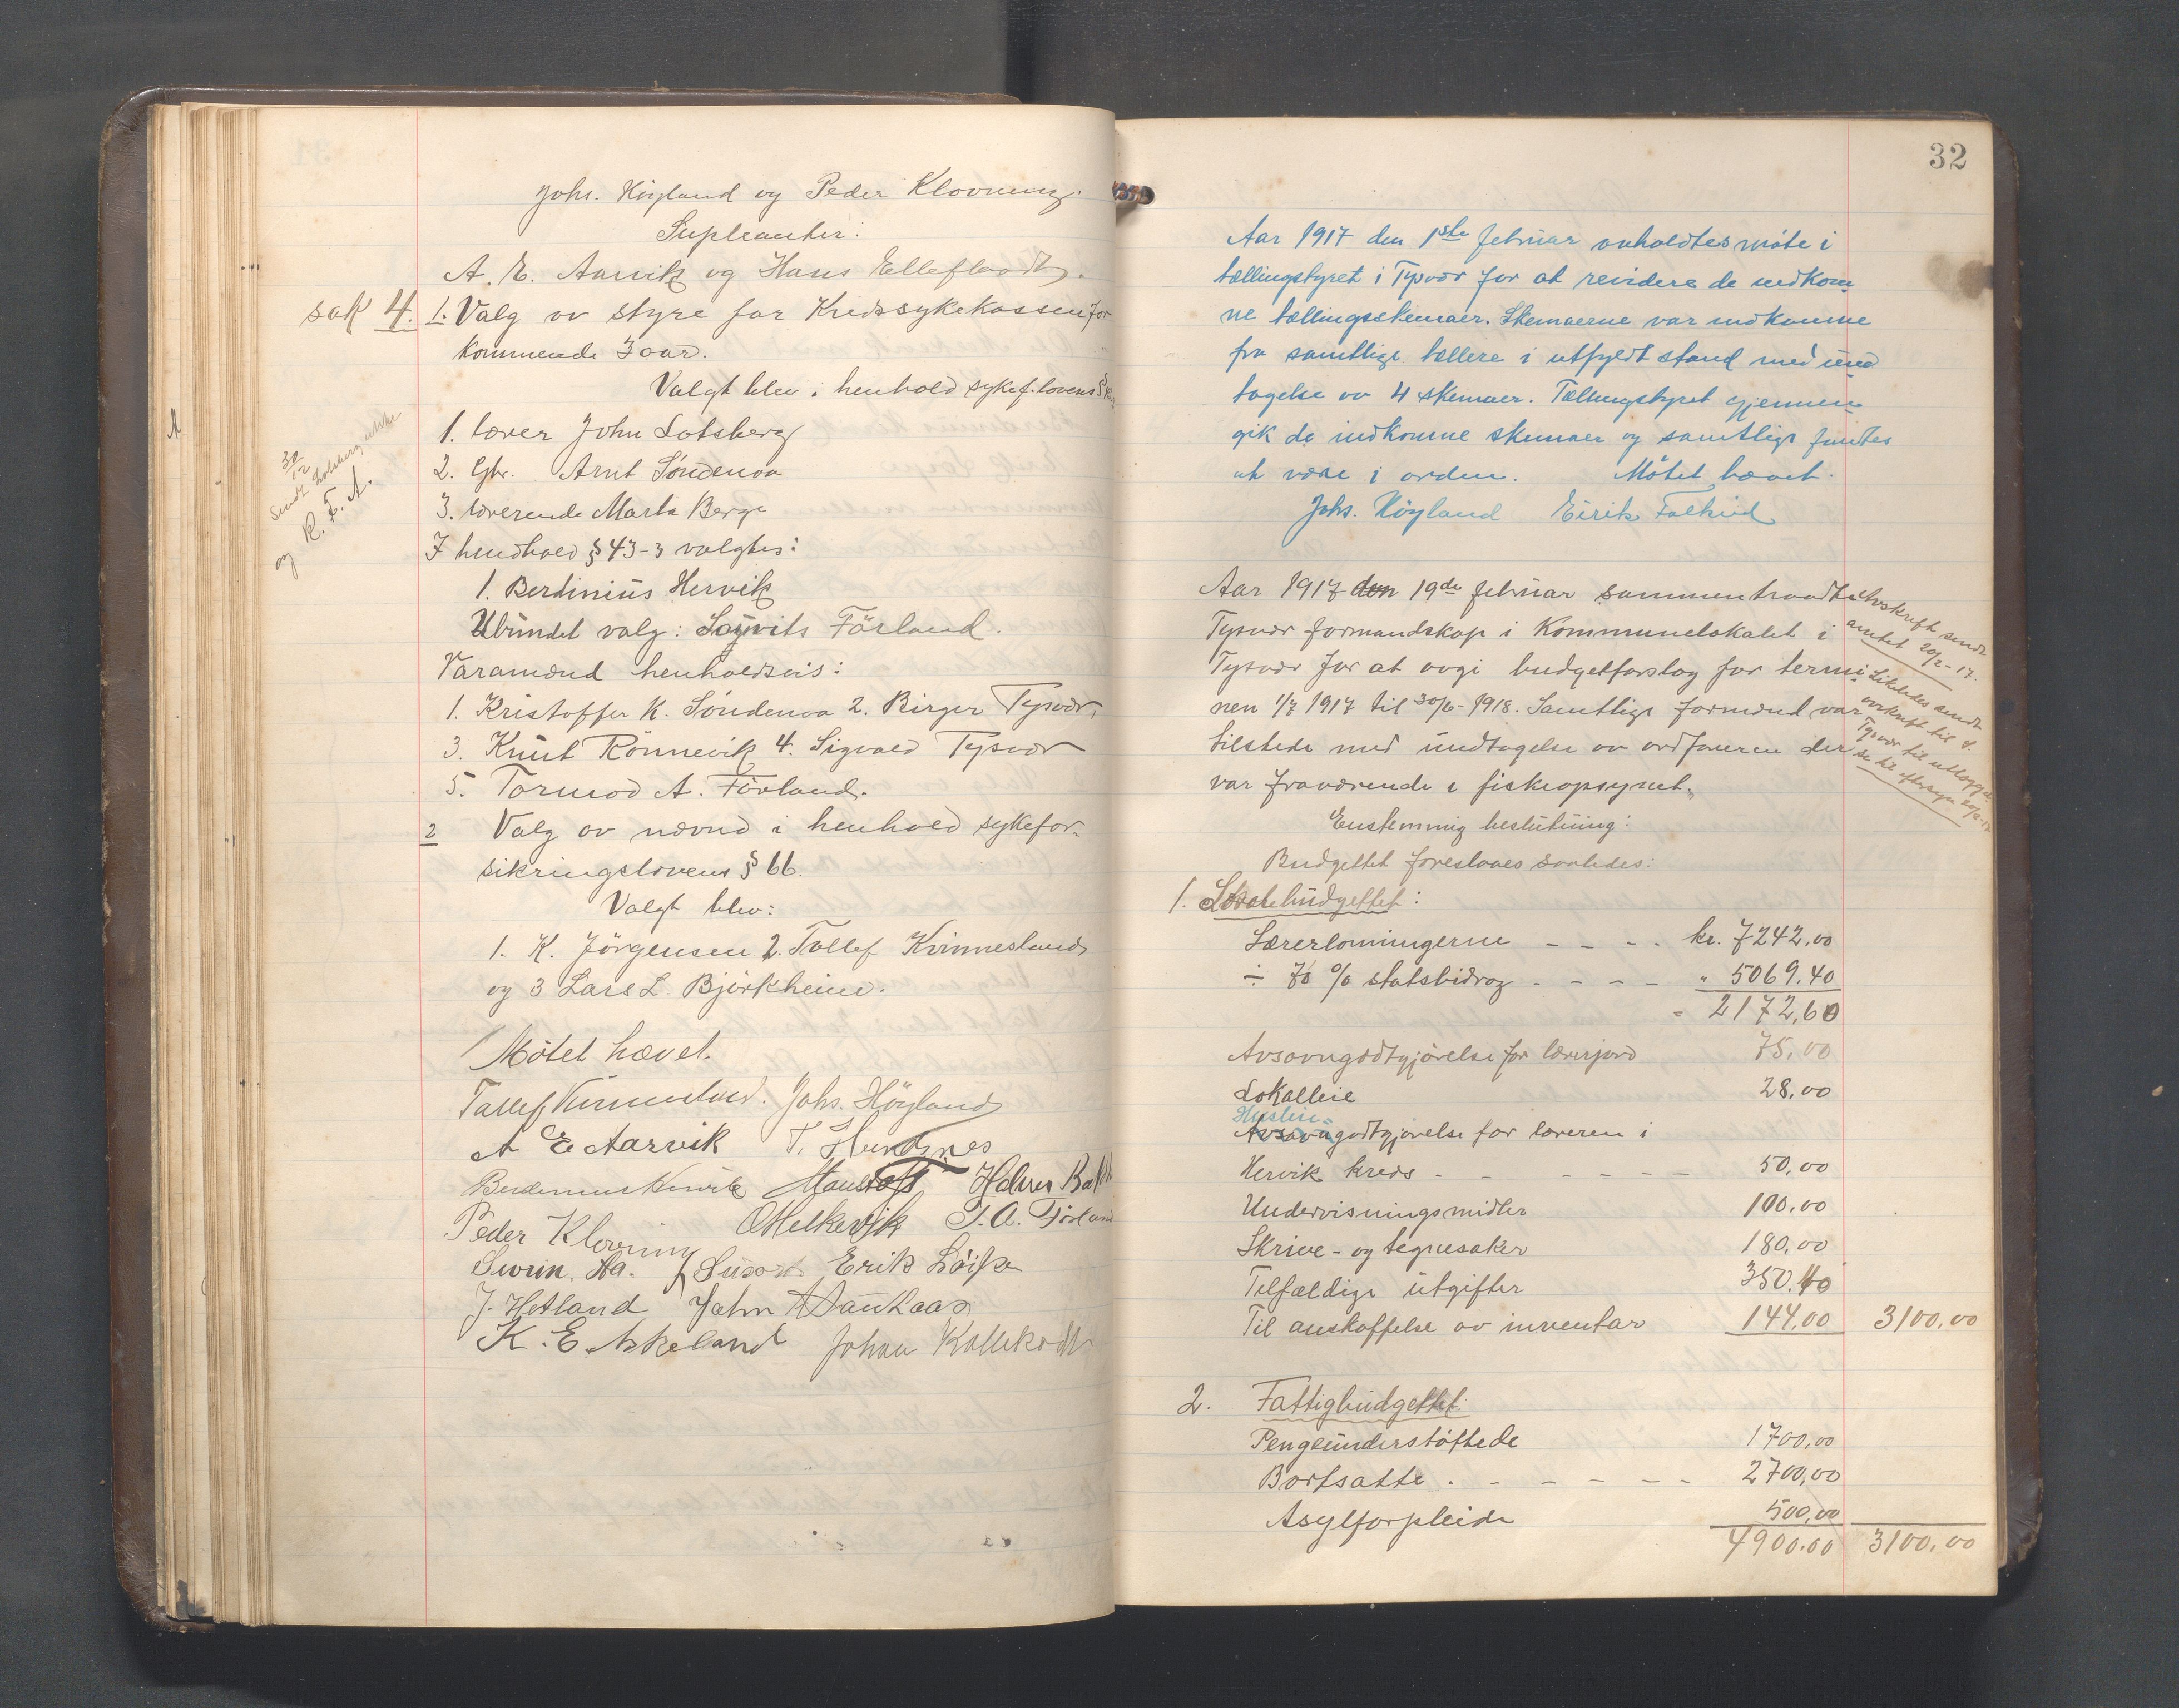 Johs. Höyland og Peder Klovning.
Supleanter:
A. E. Aarvik og Hans Elleflaadt.
sak 4. 1. Valg av styre for Kredssykekassen for
kommende 3 aar.
Valgt blev i henhold sykef.lovens §
1. lærer John Lotsberg
2. Gbr. Arnt Söndenaa
3. lærerende Marta Berge
I hendhold § 43-3 valgtes:
1. Berdinius Hervik
Ubundet valg: Förland.
Varamænd henholdsvis:
1. Kristoffer K. Söndenaa 2. Birger Tysvær,
3. Knut Rönnevik 4. Sigvald Tysvær
5. Tormod A. Förland.
2 Valg av nævnd i henhold sykefor-
sikringslovens § 66.
Valgt blev:
1. K. Jörgensen 2. Tollef Kvinnesland
og 3 Lars L. Björkheim.
Mötet hævet.
Tollef Kvinnesland. Johs. Höyland
A E Aarvik T. Hundsnes
Berdinius Hervik Hans Toft Halvor
Peder Klovning O Melkevik T. A. Förland
Svein Aa. Erik
J. Hetland John
K. E. Askeland Johan
30/12
Sendt Lotsberg utskr.
og R. F. A.
32
Aar 1917 den 1ste februar avholdtes möte i
tællingstyret i Tysvær for at revidere de indkom
ne tællingsskemaer. Skemaerne var indkomne
fra samtlige tællere i utfyldt stand med und
tagelse av 4 skemaer. Tællingstyret gjennem-
gik de indkomne skemaer og samtlige fandtes
at være i orden. Mötet hævet.
Johs. Höyland Eirik Falkeid
Aar 1917 den 19de februar sammentraadte
Tysvær formandskap i Kommunelokalet i
Tysvær for at avgi budgetforslag for termi
nen 1/7 1917 til 30/6-1918. Samtlige formænd var
tilstede med undtagelse av ordföreren der
var fraværende i fiskeopsynet.
Avskrift sendt
amtet 20/2-17.
Likeledes sendt
avskrift til l.
Tysvær til utlegg
se til eftersyn 20/2-17
Enstemmig beslutning:
Budgettet foreslaaes saaledes:
1. Skolebudgettet:
Lærerlönningerne - - - - kr. 7242,00
÷ 70 % statsbidrag - - - - " 5069.40
= 2172,60
Avsavngodtgjörelse for lærerjord 75,00
Lokalleie 28,00
Husleie-
Avsavngodtgjörelse for læreren i
Hervik kreds - - - - - - 50,00
Undervisningsmidler 100,00
Skrive- og tegnesaker 180,00
Tilfældige utgifter 350.40
Til anskaffelse av inventar 144,00 3100,00
2. Fattigbudgettet:
Pengeunderstöttede 1700,00
Bortsatte - - - - - - 2700,00
Asylforpleide 500,00
4900.00 3100,00